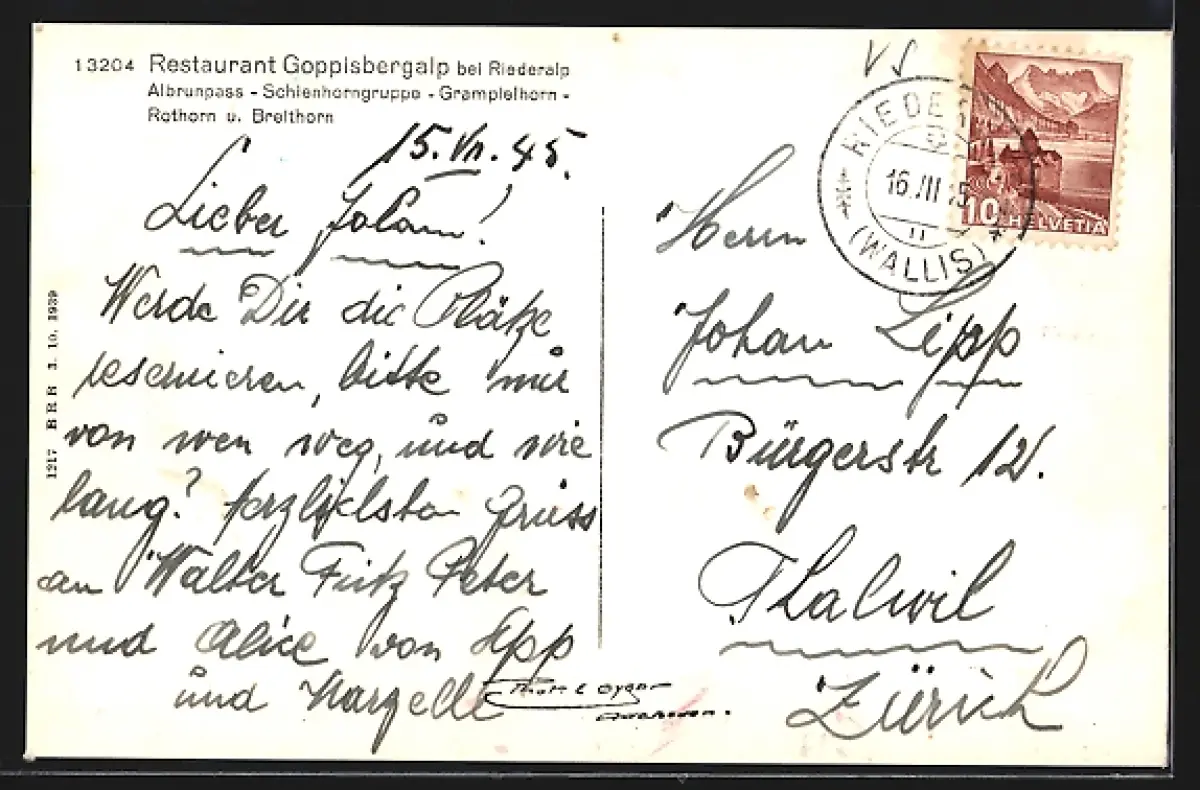 13204 Restaurant Goppisbergalp bei Riederalp
Albrunpass - Schienhorngruppe - Grampielhorn -
Rothorn u. Breithorn
15. VII. 45.
Lieber Johan!
Werde Dir die Plätze
reservieren, bitte mir
von wen weg, und wie
lang? Herzlichsten Gruss
an Walter Fritz Peter
und Alice von Sepp
und Margelle
Phot. E Gyger
Adelboden.
1217 BRB 3. 10. 1939
VS
RIEDE
16. VII 45
(WALLIS)
10 HELVETIA
Herrn
Johan Lipp
Bürgerstr 12.
Thalwil
Zürich